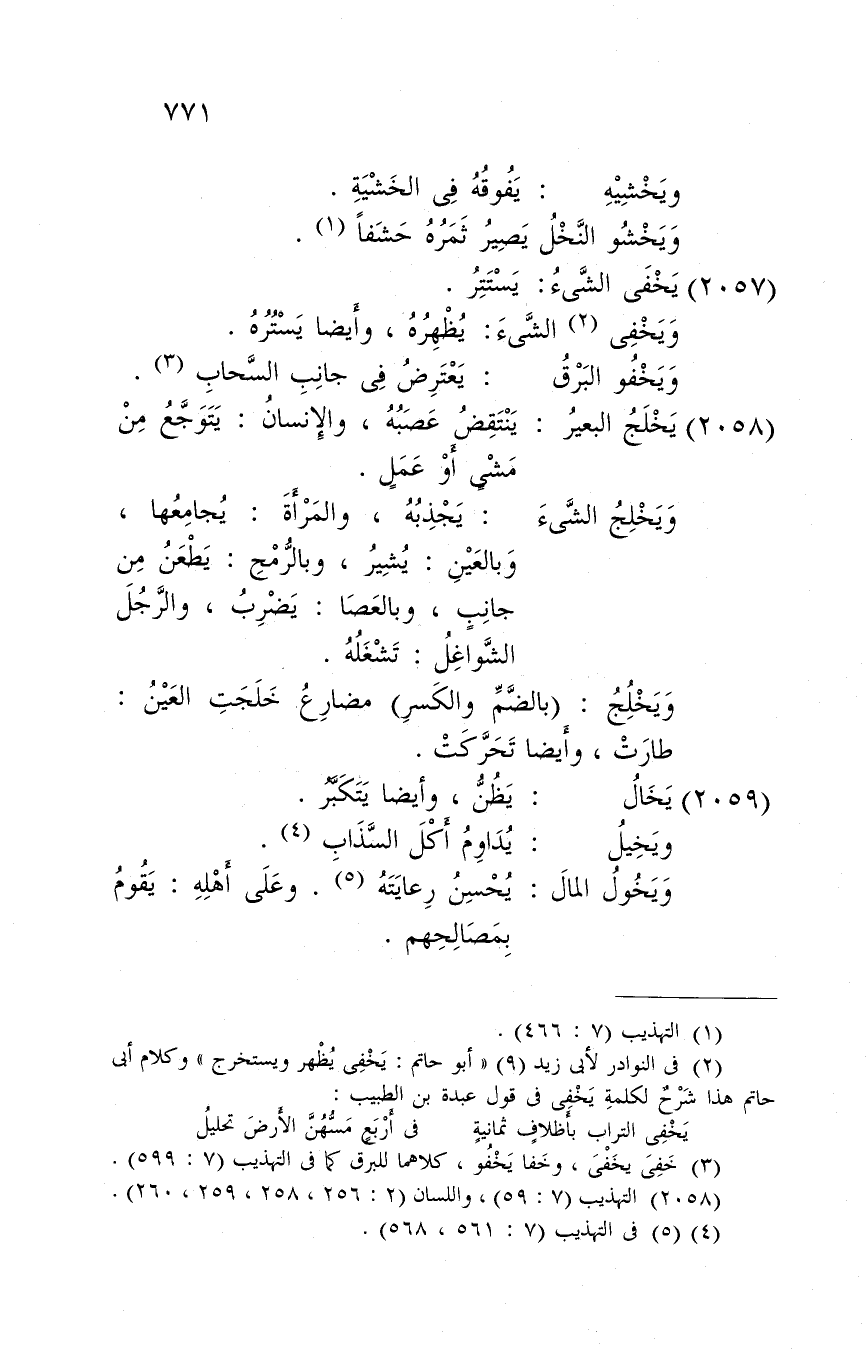 ٧٧١
ويَخْشِيْهِ : يَفُوقُهُ فِى الخَشْيَةِ .
وَيَخْشُو النَّخْلُ يَصِيرُ ثَمَرُهُ حَشَفاً (١) .
(٢٠٥٧) يَخْفَى الشَّىءُ: يَسْتَتِرُ .
وَيَخْفِى (٢) الشَّىءَ: يُظْهِرُهُ ، وأَيضا يَسْتُرُهُ .
وَيَخْفُو البَرْقُ : يَعْتَرِضُ فِى جانِبِ السَّحابِ (٣) .
(٢٠٥٨) يَخْلَجُ البعيرُ : يَنْتَقِضُ عَصَبُهُ ، والإِنسانُ : يَتَوَجَّعُ مِنْ
مَشْىٍ أَوْ عَمَلٍ .
وَيَخْلِجُ الشَّىءَ : يَجْذِبُهُ ، والمَرْأَةَ : يُجامِعُها ،
وَبالعَيْنِ : يُشِيرُ ، وبالرُّمْحِ : يَطْعَنُ مِن
جانِبٍ ، وبالعَصَا : يَضْرِبُ ، والرَّجُلَ
الشَّواغِلُ : تَشْغَلُهُ .
وَيَخْلُِجُ : (بالضَّمِّ والكَسرِ) مضارِعُ خَلَجَتِ العَيْنُ :
طارَتْ ، وأَيضا تَحَرَّكَتْ .
(٢٠٥٩) يَخَالُ : يَظُنُّ ، وأيضا يَتَكَبَّرُ .
ويَخِيلُ : يُدَاوِمُ أَكْلَ السَّذَابِ (٤) .
وَيَخُولُ المالَ : يُحْسِنُ رِعايَتَهُ (٥) . وعَلَى أَهْلِهِ : يَقُومُ
بِمَصَالِحِهم .
(١) التهذيب (٧ : ٤٦٦) .
(٢) فى النوادر لأبى زيد (٩) « أبو حاتم : يَخْفِى يُظْهر ويستخرج » وكلام أبى
حاتم هذا شَرْحٌ لكلمةِ يَخْفِى فى قول عبدة بن الطبيب :
يَخْفِى التراب بأَظلافٍ ثمانيةٍ فى أَرْبَعٍ مَسُّهُنَّ الأَرضَ تحليلُ
(٣) خَفِىَ يخَفْىَ ، وخَفا يَخْفُو ، كلاهما للبرق كما فى التهذيب (٧ : ٥٩٩) .
(٢٠٥٨) التهذيب (٧ : ٥٩) ، واللسان (٢ : ٢٥٦ ، ٢٥٨ ، ٢٥٩ ، ٢٦٠) .
(٤) (٥) فى التهذيب (٧ : ٥٦١ ، ٥٦٨) .